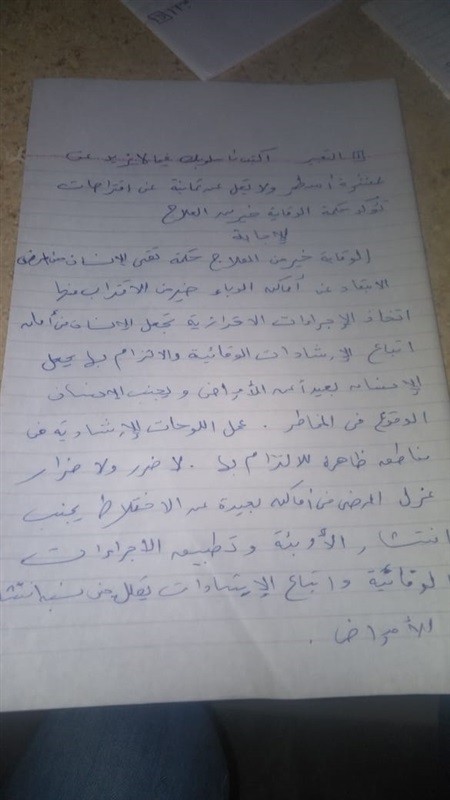 التعبير اكتب بأسلوبك فيما لا يزيد عن
عشرة أسطر ولا يقل عن ثمانية عن اقتراحات
تؤكد حكمة الوقاية خير من العلاج
الإجابة
الوقاية خير من العلاج حكمة تقي الإنسان من المرض
الابتعاد عن أماكن الوباء خير من الاقتراب منها
اتخاذ الإجراءات الاحترازية تجعل الانسان في أمان
اتباع الإرشادات الوقائية والالتزام بها يجعل
الإنسان بعيداً عن الأمراض ويجنب الانسان
الوقوع في المخاطر . عمل اللوحات الإرشادية في
مناطق ظاهرة للالتزام بها . لا ضرر ولا ضرار
عزل المرضى في أماكن بعيدة عن الاختلاط يجنب
انتشار الأوبئة وتطبيق الأجراءات
الوقائية واتباع الإرشادات يقلل من نسب انتشا
الأمراض .